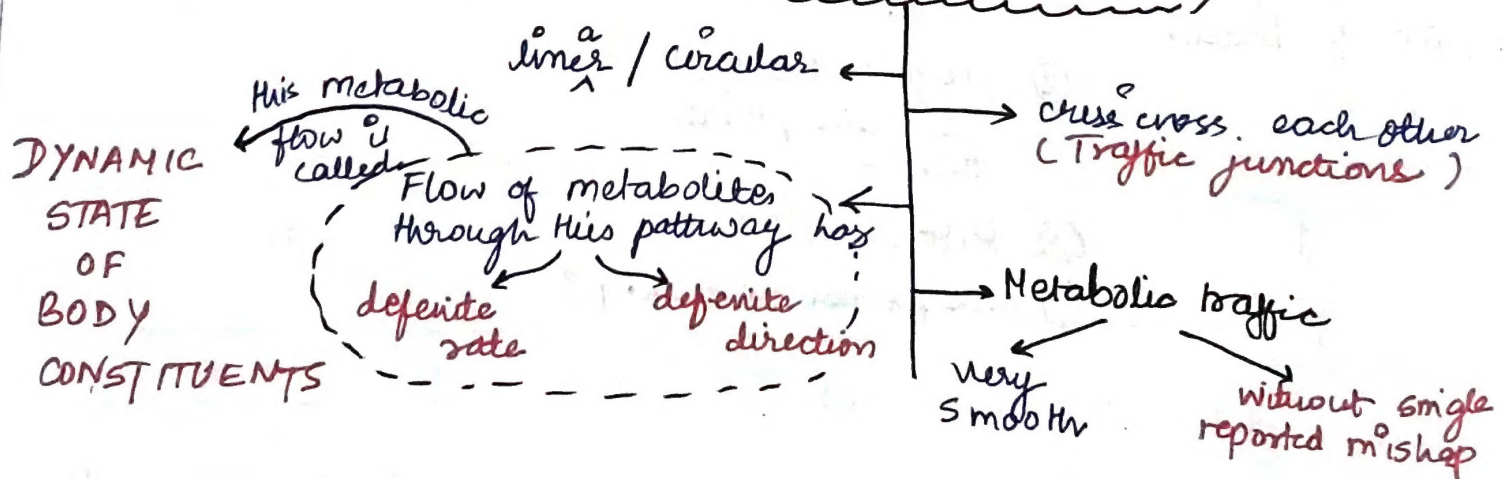 linear / circular
criss cross. each other
(Traffic junctions)
this metabolic
flow is
called
DYNAMIC
STATE
OF
BODY
CONSTITUENTS
Flow of metabolites
through this pathway has
defenite
rate
defenite
direction
Metabolic traffic
very
smooth
without single
reported mishap